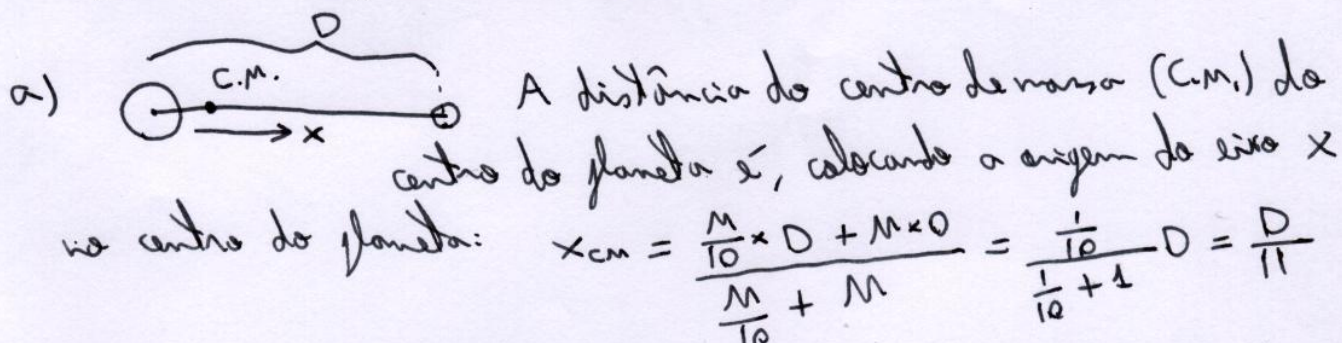 D
a) C.M. A distância do centro de massa (C.M.) do
x
centro do planeta é, colocando a origem do eixo x
no centro do planeta: xCM = (M/10 × D + M×0) / (M/10 + M) = (1/10) / (1/10 + 1) D = D/11